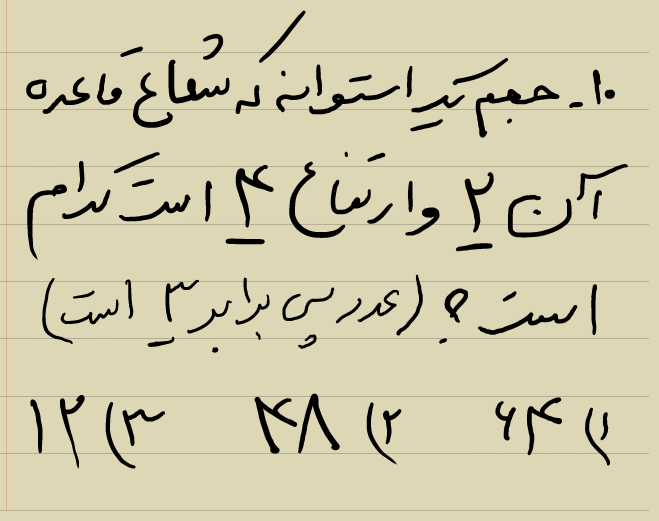 ۱۰- حجم یک استوانه که شعاع قاعده
آن ۲ و ارتفاع ۴ است کدام
است ؟ (عدد پی برابر ۳ است)
۱) ۶۴ ۲) ۴۸ ۳) ۱۲